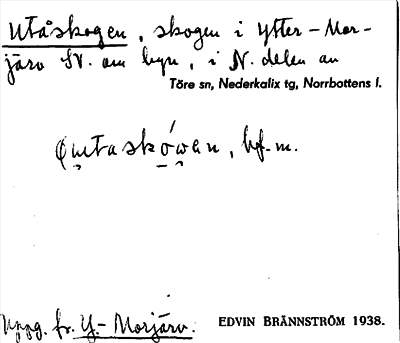 Utåskogen, skogen i Ytter-Mor-
järv SV. om byn, i N. delen av
Töre sn, Nederkalix tg, Norrbottens l.
bf. m.
Uppg. fr. Y.- Morjärv.
EDVIN BRÄNNSTRÖM 1938.